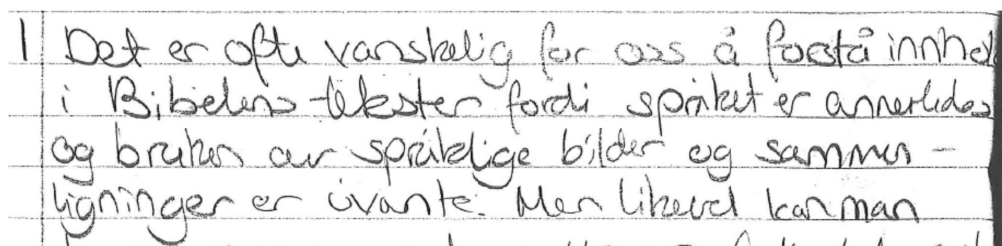 1 Det er ofte vanskelig for oss å forstå innhol
i Bibelens tekster fordi språket er annerledes
og bruken av språklige bilder og sammen-
ligninger er uvante. Men likevel kan man